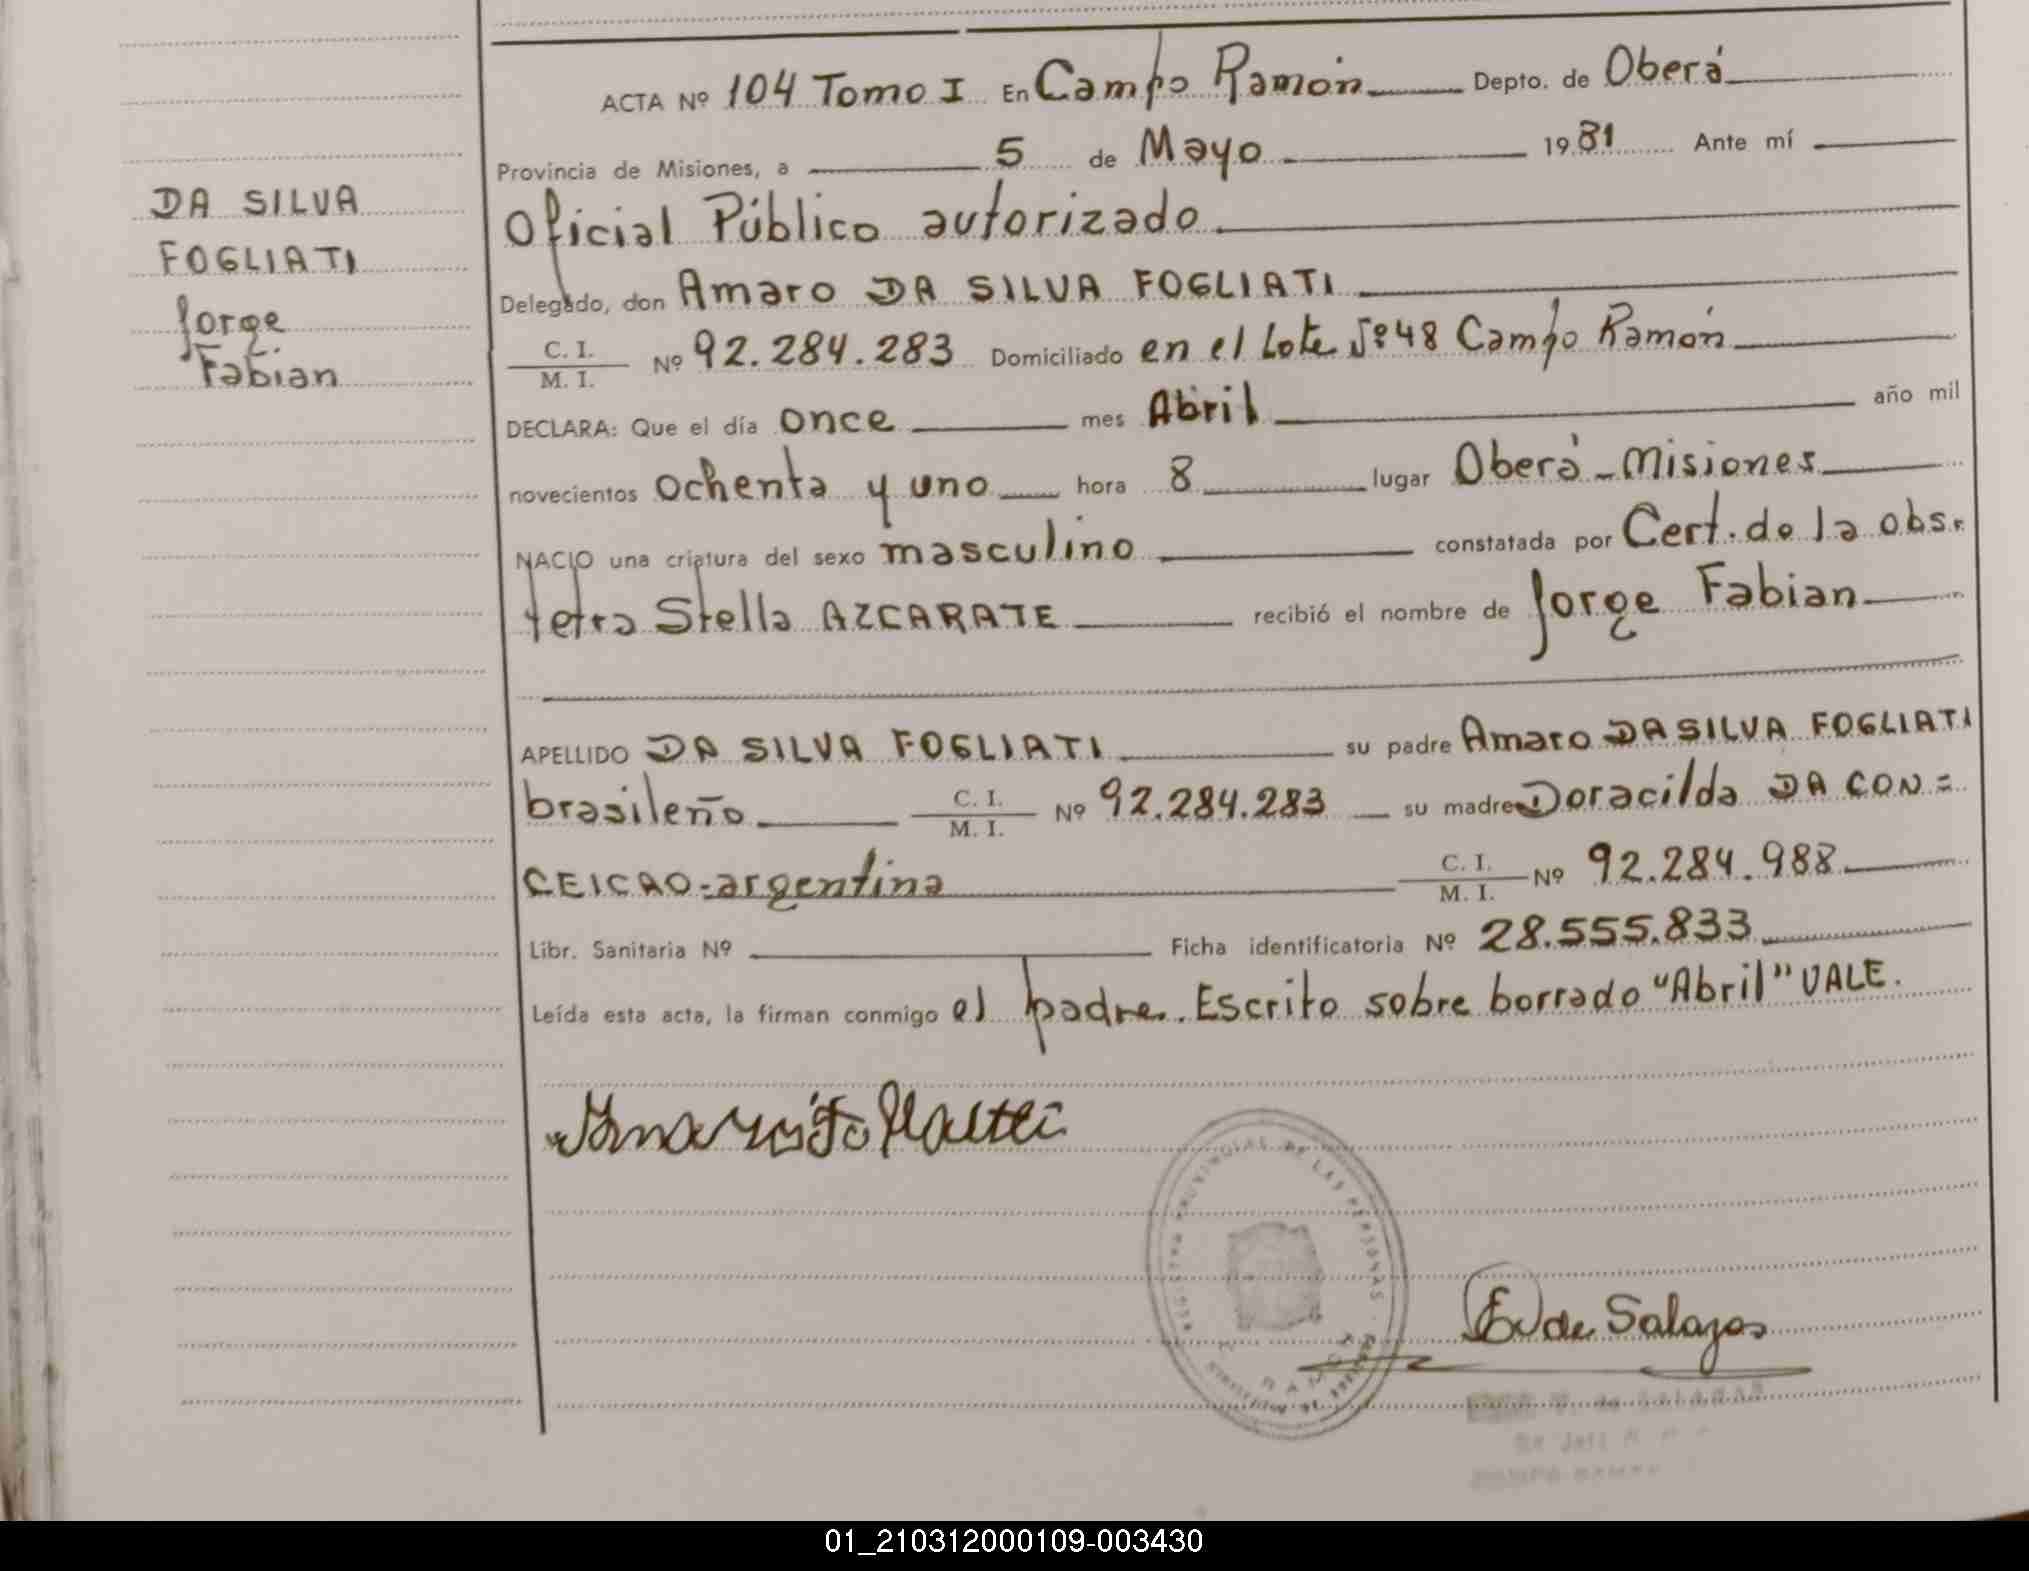 ACTA Nº 104 Tomo I En Campo Ramón Depto. de Oberá
Provincia de Misiones, a 5 de Mayo 1981 Ante mí
Oficial Público autorizado
Delegado, don Amaro DA SILVA FOGLIATI
C. I.
M. I. Nº 92.284.283 Domiciliado en el Lote Nº 48 Campo Ramón
DECLARA: Que el día once mes Abril año mil
novecientos ochenta y uno hora 8 lugar Oberá - Misiones
NACIO una criatura del sexo masculino constatada por Cert. de la obs.
tetra Stella AZCARATE recibió el nombre de Jorge Fabian
APELLIDO DA SILVA FOGLIATI su padre Amaro DA SILVA FOGLIATI
brasileño C. I.
M. I. Nº 92.284.283 su madre Doracilda DA CON=
CEICAO-argentina C. I.
M. I. Nº 92.284.988
Libr. Sanitaria Nº Ficha identificatoria Nº 28.555.833
Leída esta acta, la firman conmigo el padre. Escrito sobre borrado "Abril" VALE.
DA SILVA
FOGLIATI
Jorge
Fabian
REGISTRO PROVINCIAL DE LAS PERSONAS
E V de Salazar
01_210312000109-003430